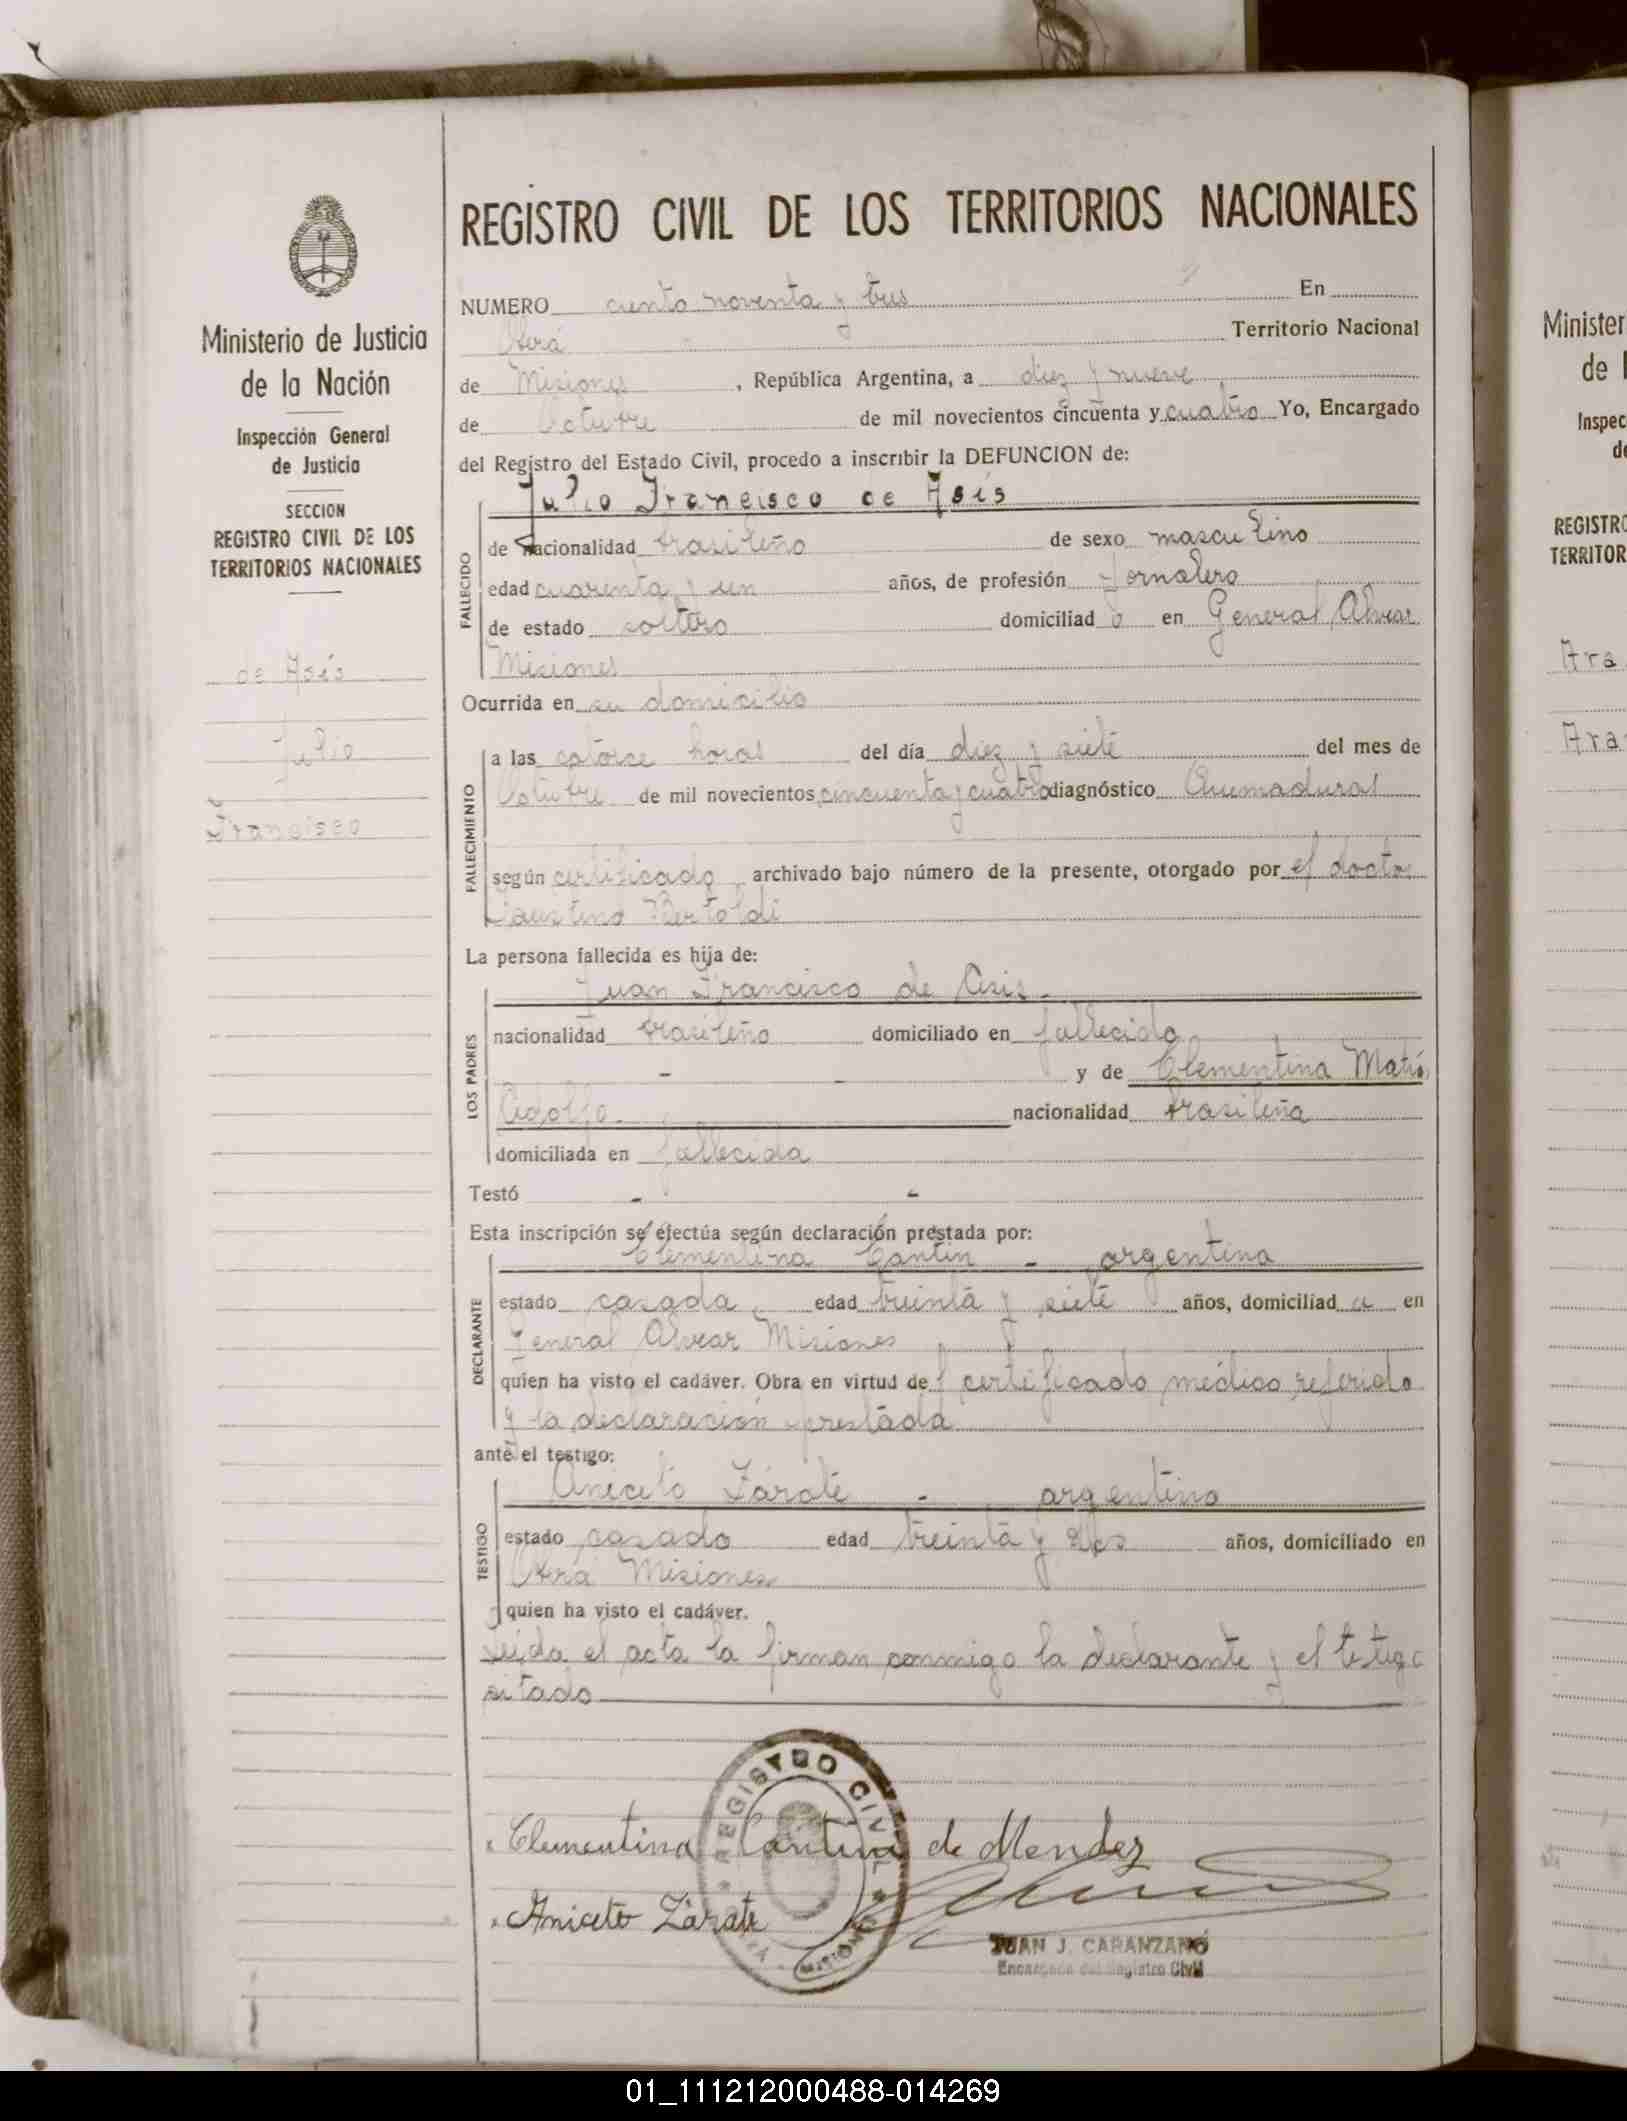 REGISTRO CIVIL DE LOS TERRITORIOS NACIONALES
Ministerio de Justicia
de la Nación
Inspección General
de Justicia
SECCION
REGISTRO CIVIL DE LOS
TERRITORIOS NACIONALES
de Asís
Julio
Francisco
NUMERO ciento noventa y tres En
Oberá Territorio Nacional
de Misiones, República Argentina, a diez y nueve
de Octubre de mil novecientos cincuenta y cuatro Yo, Encargado
del Registro del Estado Civil, procedo a inscribir la DEFUNCION de:
Julio Francisco de Asís
FALLECIDO
de nacionalidad brasileño de sexo masculino
edad cuarenta y un años, de profesión Jornalero
de estado soltero domiciliad o en General Alvear
Misiones
Ocurrida en su domicilio
FALLECIMIENTO
a las catorce horas del día diez y siete del mes de
Octubre de mil novecientos cincuenta y cuatro diagnóstico Quemaduras
según certificado archivado bajo número de la presente, otorgado por el doctor
Faustino Bertoldi
La persona fallecida es hija de:
LOS PADRES
Juan Francisco de Asis -
nacionalidad brasileño domiciliado en fallecido
- - y de Clementina Matí
Adolfo nacionalidad brasileña
domiciliada en fallecida
Testó - -
Esta inscripción se efectúa según declaración prestada por:
DECLARANTE
Clementina Cantin - argentina
estado casada edad treinta y siete años, domiciliad a en
General Alvear Misiones
quien ha visto el cadáver. Obra en virtud del certificado médico referido
y la declaración prestada
ante el testigo:
TESTIGO
Aniceto Zárate - argentino
estado casado edad treinta y dos años, domiciliado en
Oberá Misiones
quien ha visto el cadáver.
Leida el acta la firman conmigo la declarante y el tetigo
citado
REGISTRO CIVIL
MISIONES
Clementina Cantini de Mendez
Aniceto Zárate
JUAN J. CARANZANO
Encargado del Registro Civil
Minister
de l
Inspec
de
REGISTRO
TERRITOR
Ara
Ara
01_111212000488-014269